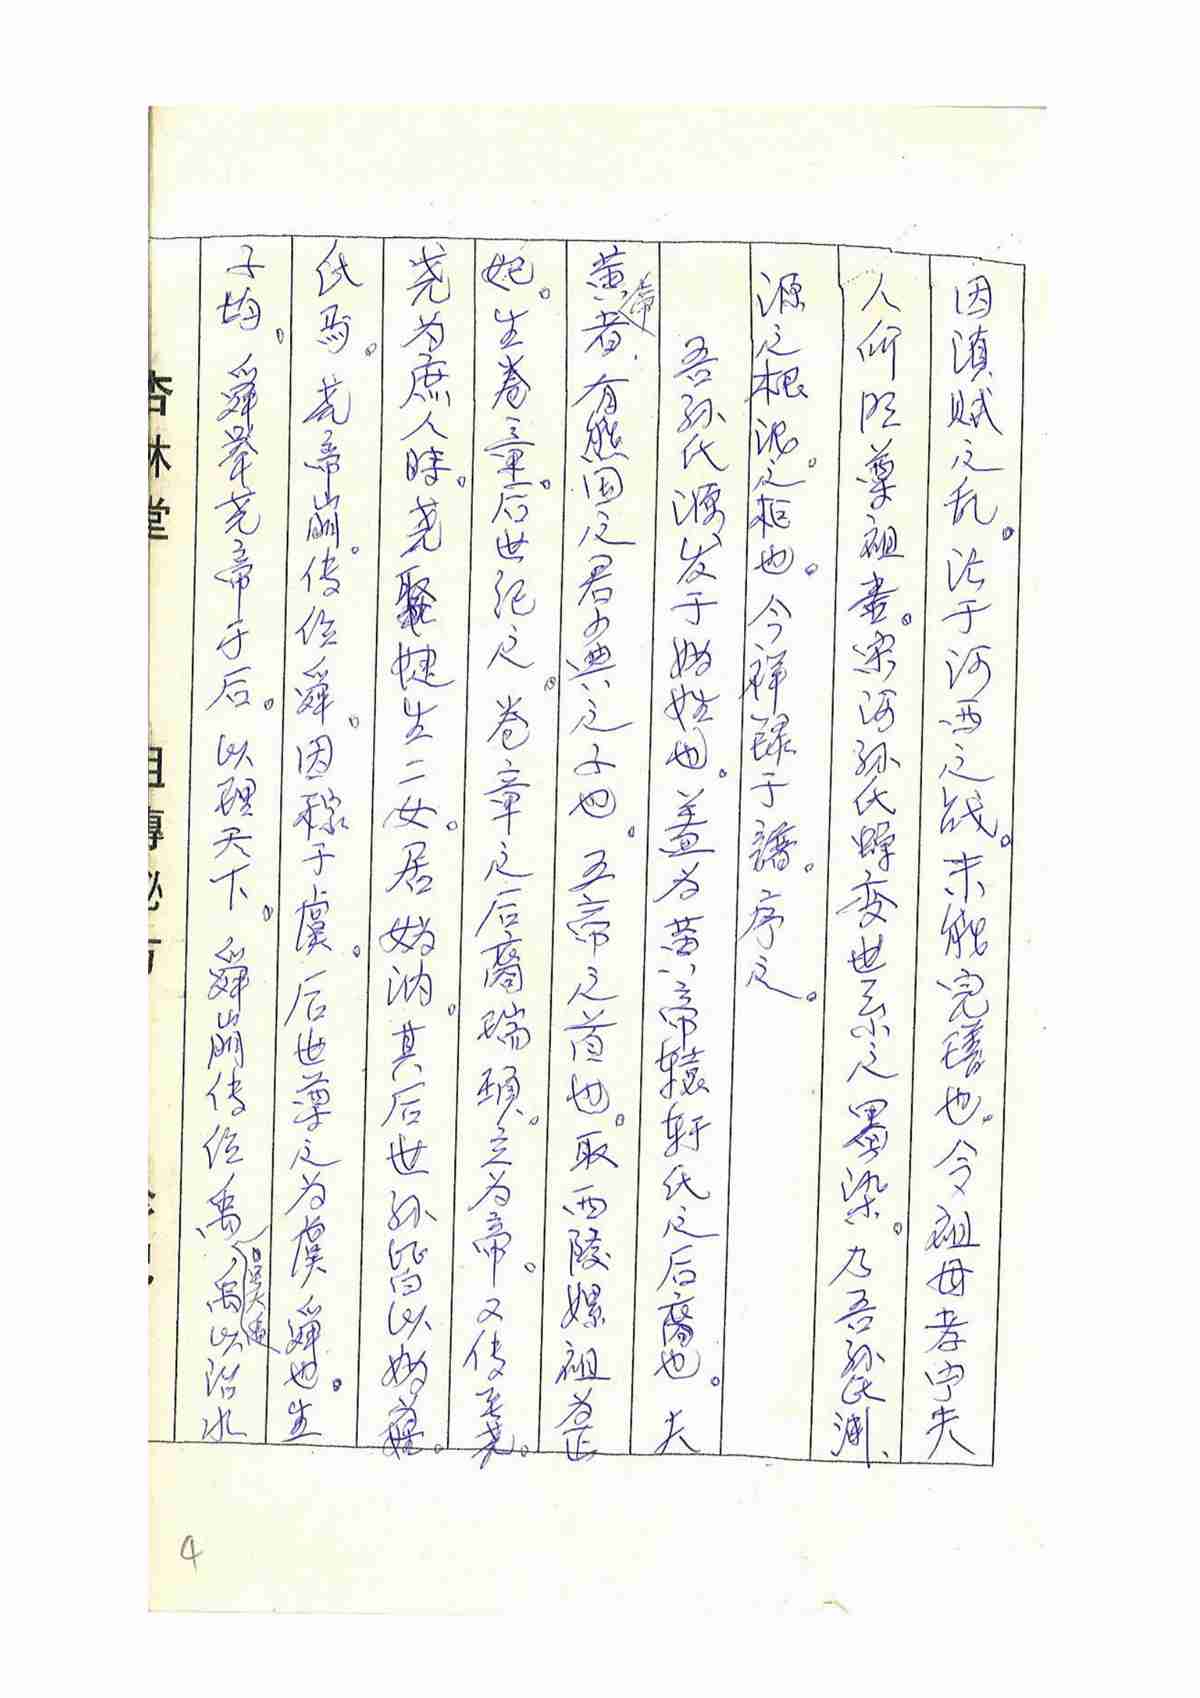 因滇贼之乱。沾于河西之战。未能完璠也。今祖母孝守夫
人所臣尊祖書。宋河孙氏蝉变世系之墨染。乃吾孙氏渊、
源之根。泥之柜也。今祥録于譜。序之。
吾孙氏源发于妫姓也。盖为黄帝辕轩氏之后裔也。夫
黄帝者、有熊国之君少典之子也。五帝之首也。取西陵嫘祖为正
妃。生卷章。后世纪之。卷章之后裔瑞頊。立为帝。又传至尧。
尧为庶人時。尧娶婕生二女。居妫汭。其后世孙皆以妫為
氏焉。尧帝崩。传位舜。因稼于虞。后世尊之为虞舜也。生
子均。舜举尧帝于后。以理天下。舜崩传位禹、禹以治水
杏林堂
祖傳秘方
4